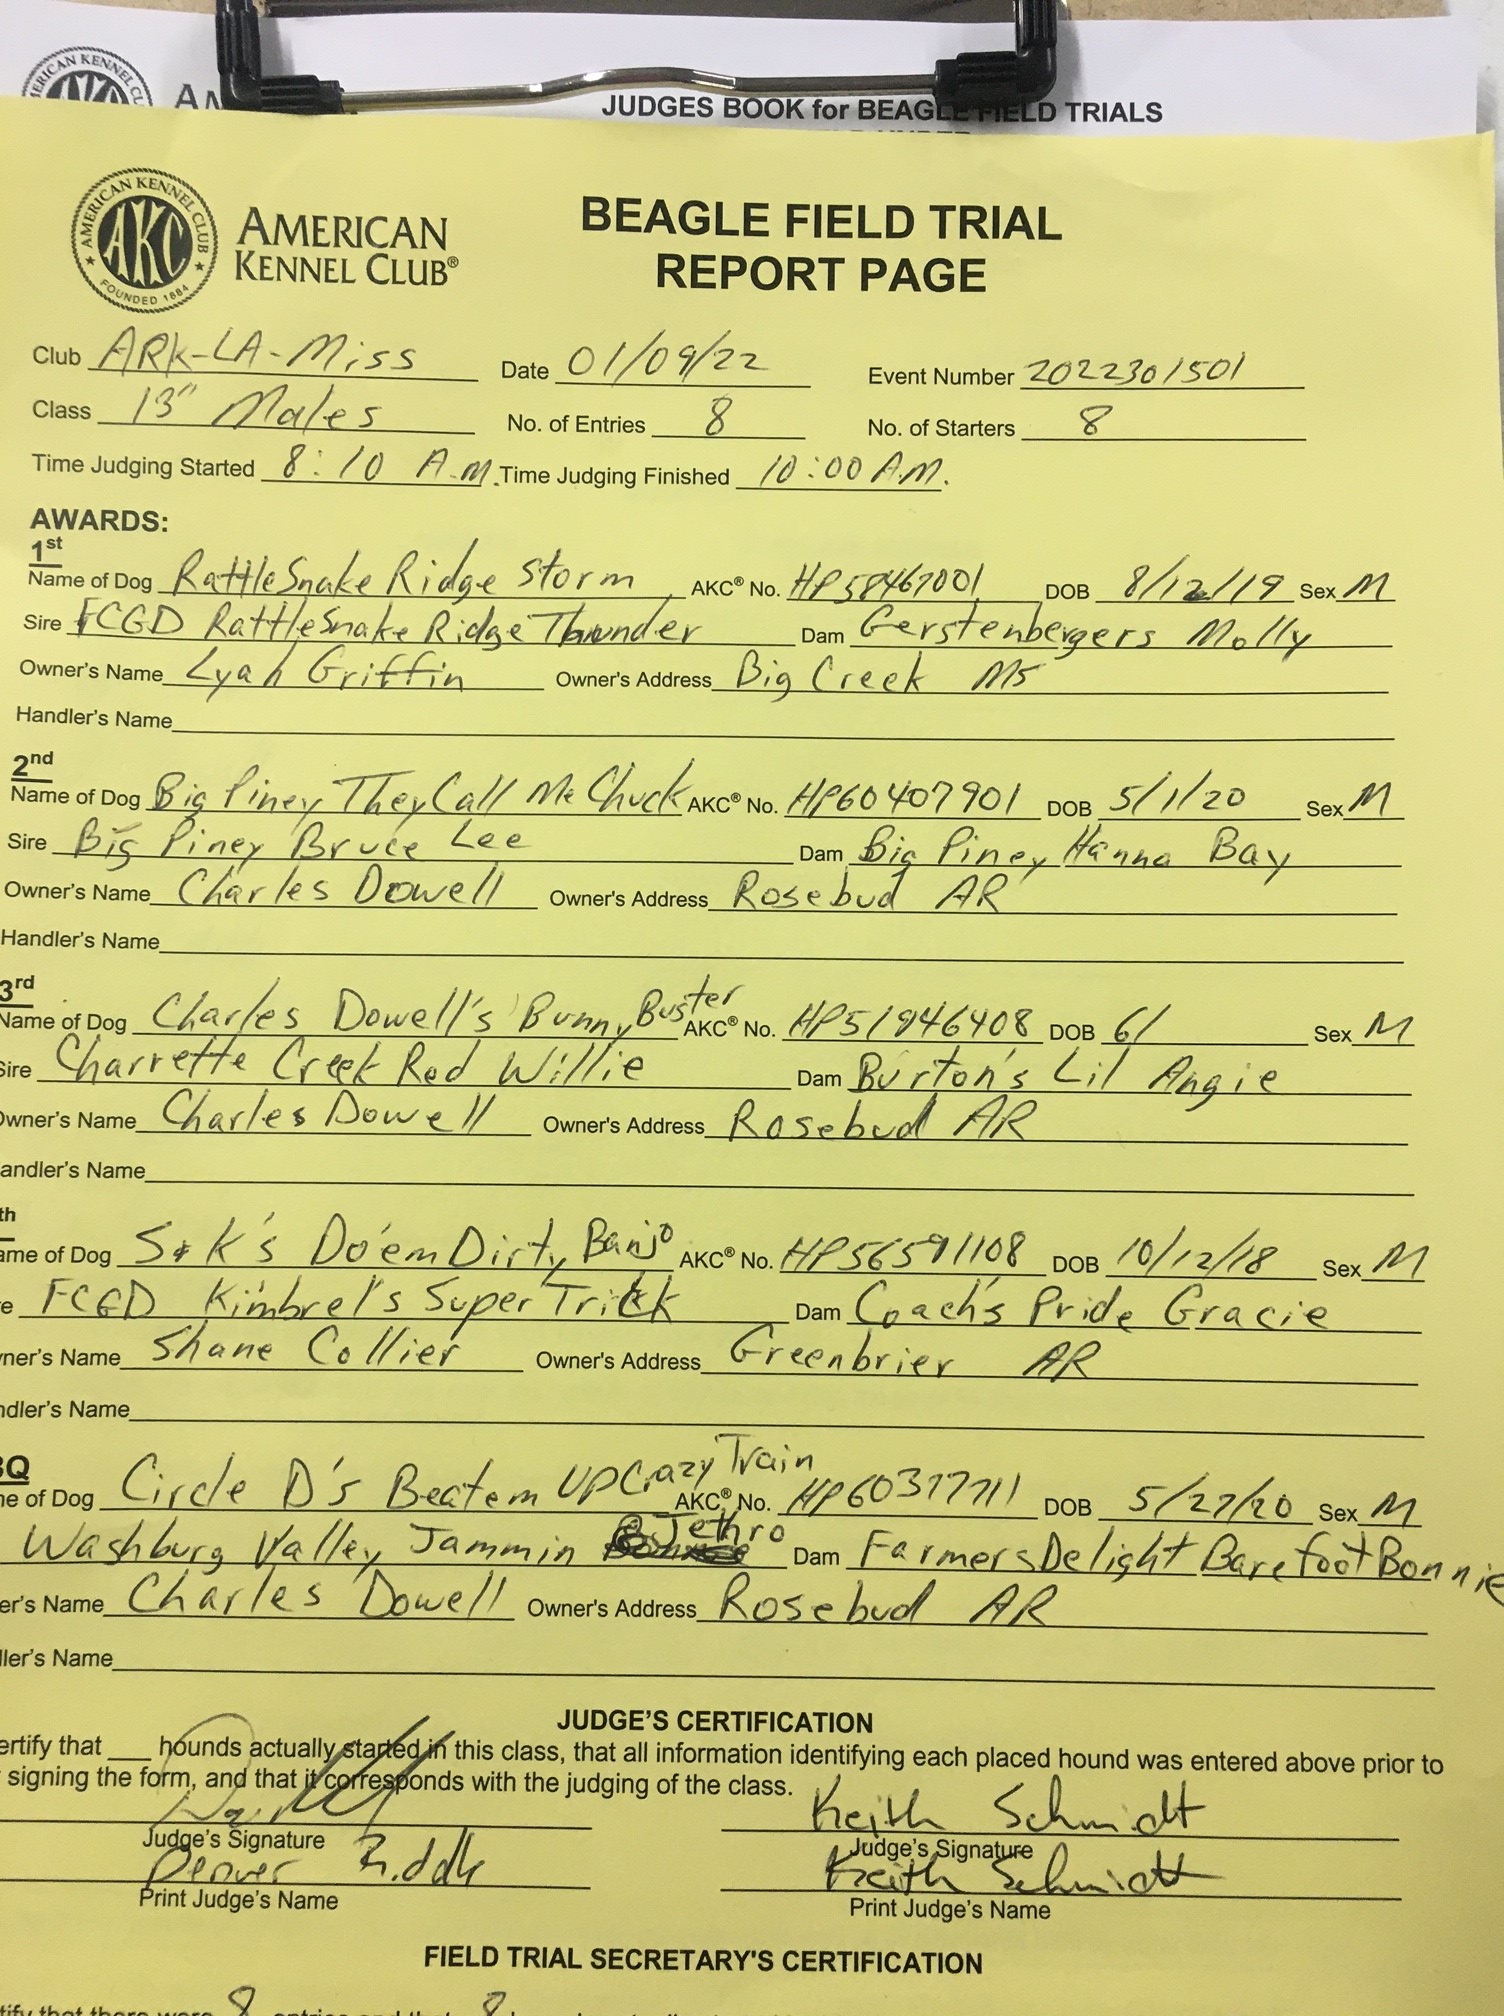 AMERICAN KENNEL CLUB
JUDGES BOOK for BEAGLE FIELD TRIALS
AMERICAN KENNEL CLUB
AKC
FOUNDED 1884
AMERICAN
KENNEL CLUB®
BEAGLE FIELD TRIAL
REPORT PAGE
Club ARK-LA-Miss Date 01/09/22 Event Number 2022301501
Class 13" Males No. of Entries 8 No. of Starters 8
Time Judging Started 8:10 A.M. Time Judging Finished 10:00 A.M.
AWARDS:
1st
Name of Dog RattleSnake Ridge Storm AKC® No. HP58467001 DOB 8/12/19 Sex M
Sire FCGD RattleSnake Ridge Thunder Dam Gerstenbergers Molly
Owner's Name Lyah Griffin Owner's Address Big Creek MS
Handler's Name
2nd
Name of Dog Big Piney They Call Me Chuck AKC® No. HP60407901 DOB 5/1/20 Sex M
Sire Big Piney Bruce Lee Dam Big Piney Hanna Bay
Owner's Name Charles Dowell Owner's Address Rosebud AR
Handler's Name
3rd
Name of Dog Charles Dowell's Bunny Buster AKC® No. HP51946408 DOB 6/ Sex M
Sire Charrette Creek Red Willie Dam Burton's Lil Angie
Owner's Name Charles Dowell Owner's Address Rosebud AR
andler's Name
th
ame of Dog S&K's Do'em Dirty Banjo AKC® No. HP56591108 DOB 10/12/18 Sex M
e FCGD Kimbrel's Super Trick Dam Coach's Pride Gracie
ner's Name Shane Collier Owner's Address Greenbrier AR
ndler's Name
BQ
e of Dog Circle D's Beatem UP Crazy Train AKC® No. HP60377711 DOB 5/27/20 Sex M
Washburg Valley Jammin Jethro Dam Farmers Delight Barefoot Bonnie
er's Name Charles Dowell Owner's Address Rosebud AR
ller's Name
JUDGE'S CERTIFICATION
ertify that ___ hounds actually started in this class, that all information identifying each placed hound was entered above prior to
signing the form, and that it corresponds with the judging of the class.
Keith Schmidt
Judge's Signature Judge's Signature
Denver Riddle Keith Schmidt
Print Judge's Name Print Judge's Name
FIELD TRIAL SECRETARY'S CERTIFICATION
tify that there were 8 entries and that 8